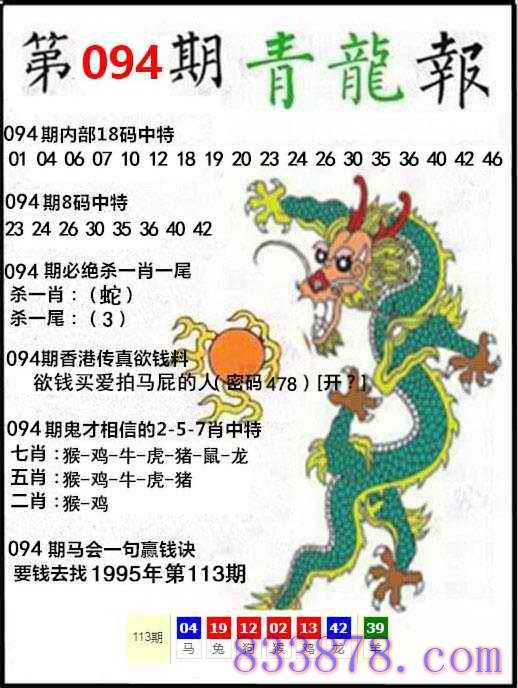 第094期 青龍報
094期内部18码中特
01 04 06 07 10 12 18 19 20 23 24 26 30 35 36 40 42 46
094期8码中特
23 24 26 30 35 36 40 42
094期必绝杀一肖一尾
杀一肖：（蛇）
杀一尾：（3）
094期香港传真欲钱料
欲钱买爱拍马屁的人(密码478)[开?]
094期鬼才相信的2-5-7肖中特
七肖:猴-鸡-牛-虎-猪-鼠-龙
五肖:猴-鸡-牛-虎-猪
二肖:猴-鸡
094期马会一句赢钱诀
要钱去找1995年第113期
113期 04 19 12 02 13 42 39
马 兔 狗 猴 鸡 龙 羊
833878.com